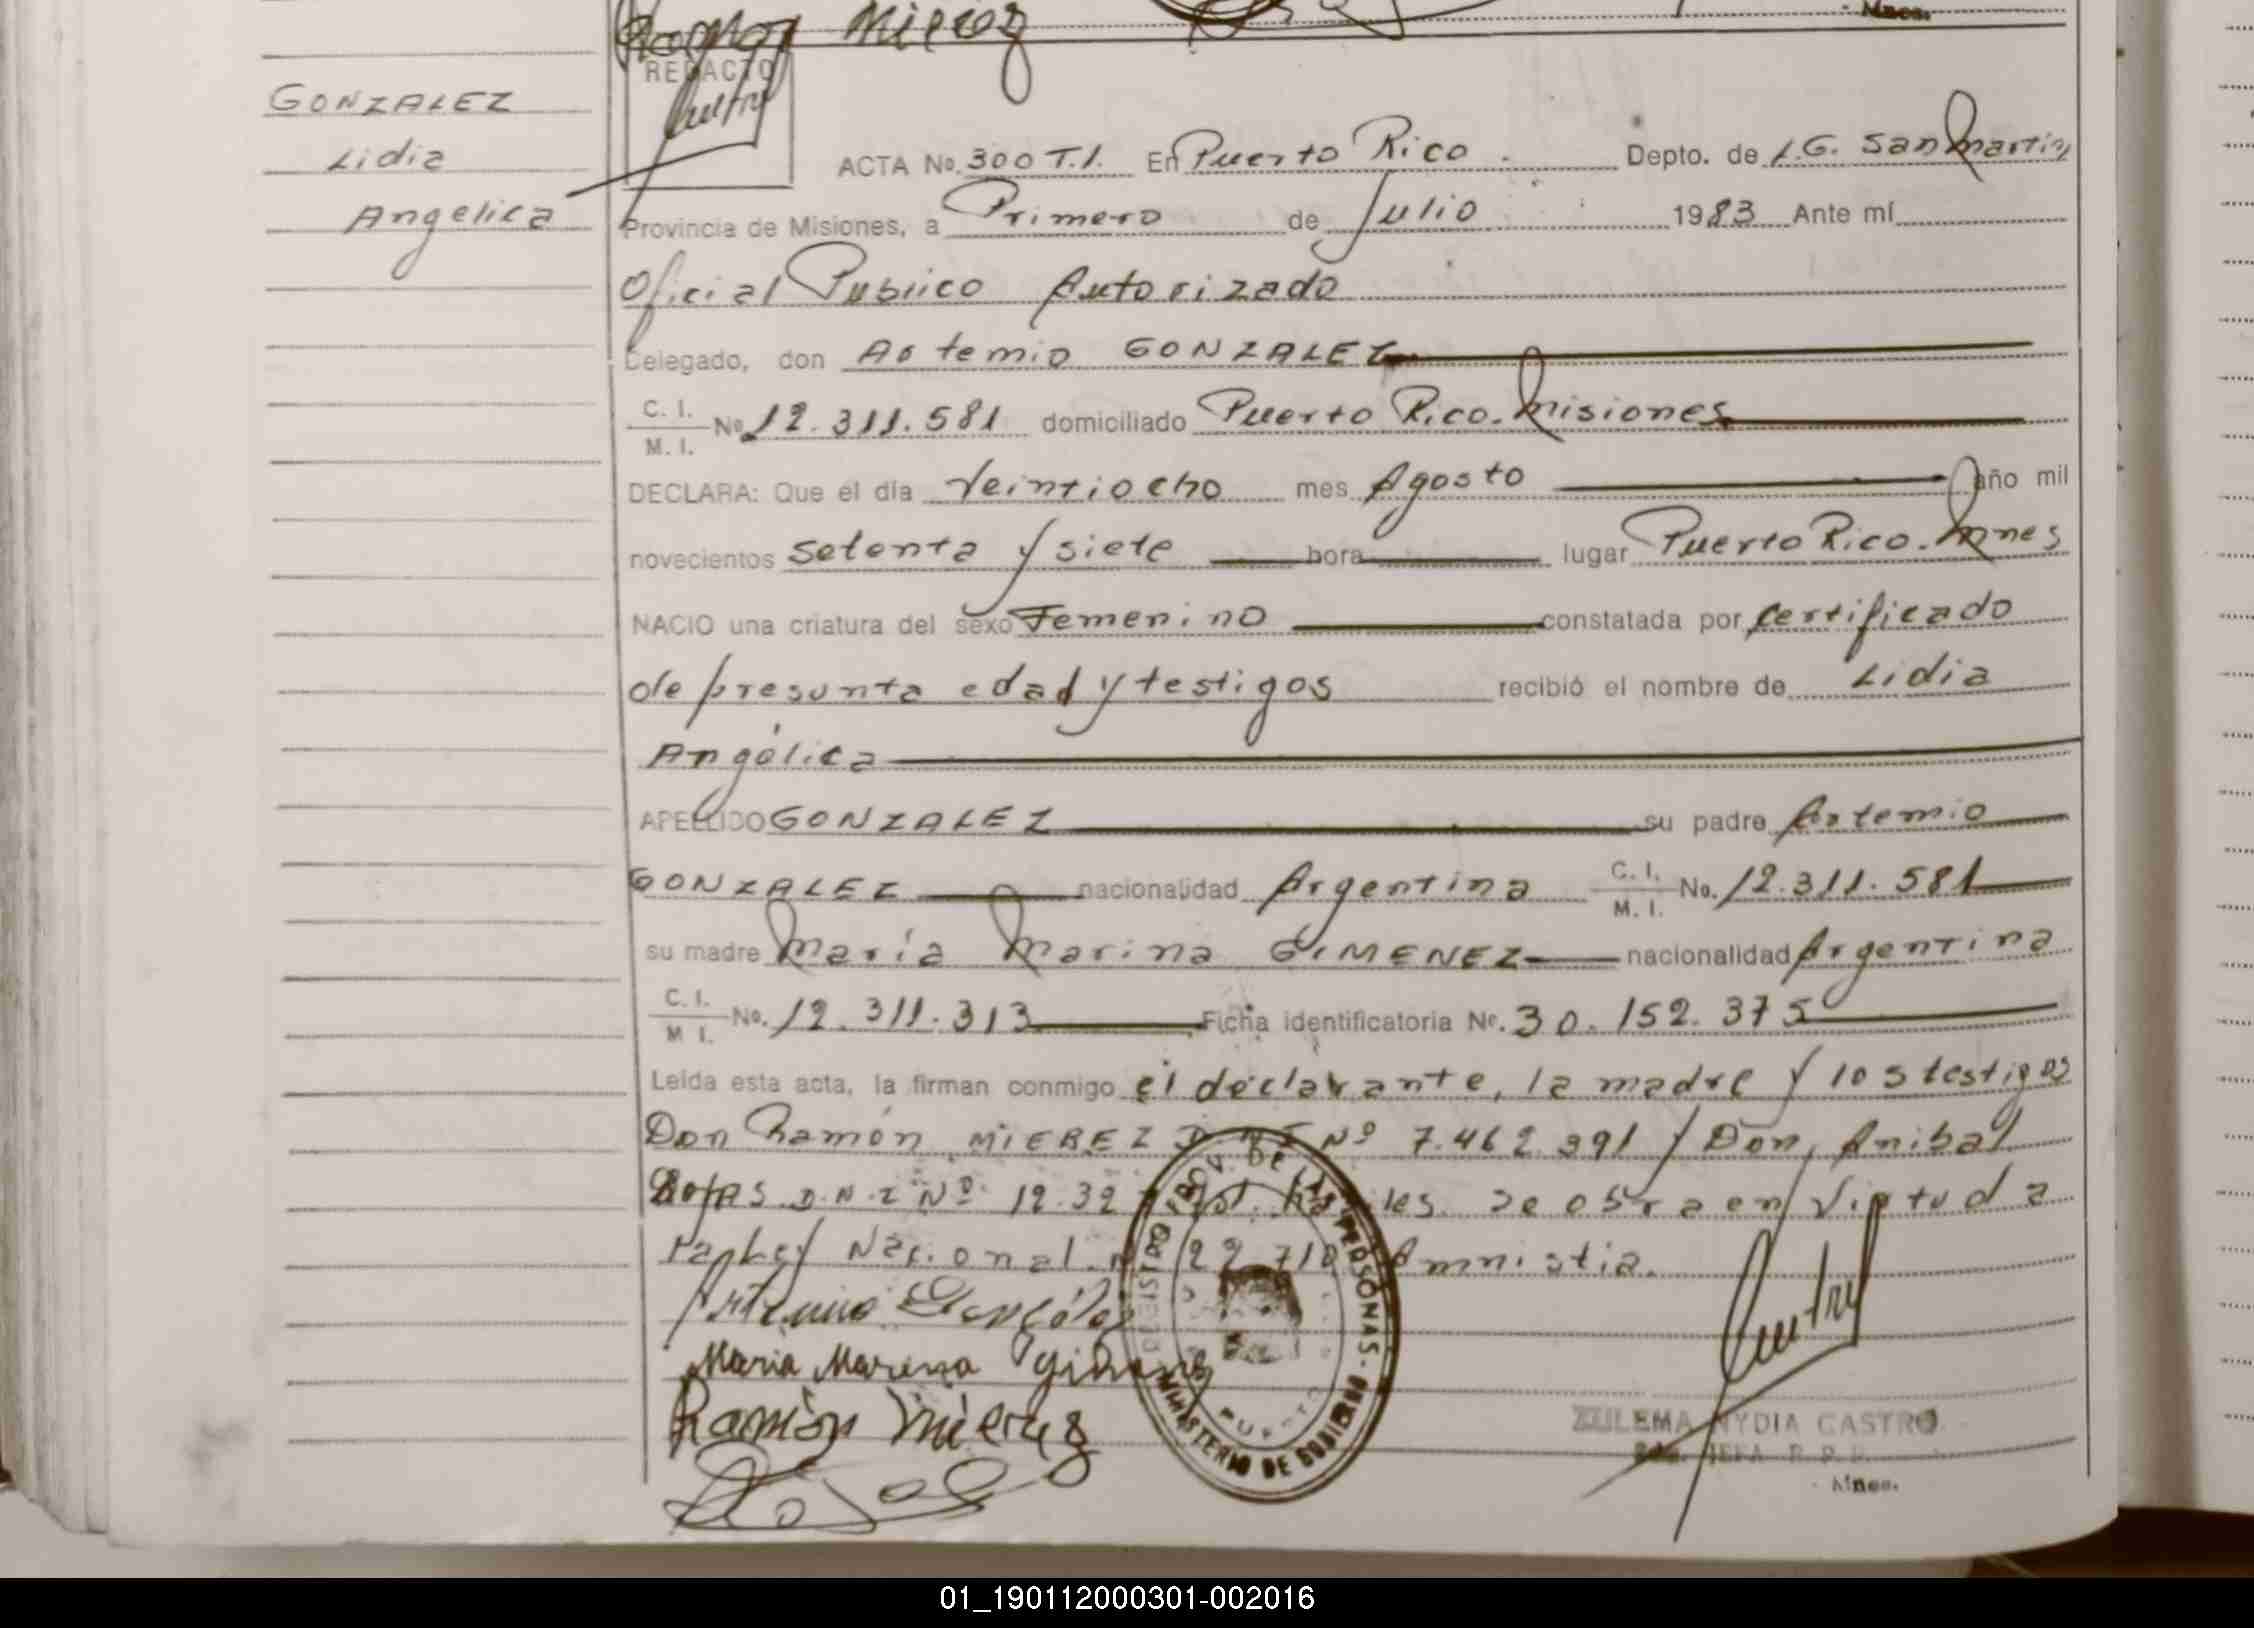 Ramon Mierez
Mnes.
REDACTO
GONZALEZ
Lidia
Angelica
ACTA No. 300 T.I. En Puerto Rico Depto. de L.G. San Martin
Provincia de Misiones, a Primero de Julio 1983 Ante mí
Oficial Publico Autorizado
Delegado, don Artemio GONZALEZ
C. I. / M. I. No. 12.311.581 domiciliado Puerto Rico. Misiones
DECLARA: Que el día Veintiocho mes Agosto año mil
novecientos setenta y siete hora lugar Puerto Rico. Mnes
NACIO una criatura del sexo Femenino constatada por certificado
de presunta edad y testigos recibió el nombre de Lidia
Angélica
APELLIDO GONZALEZ su padre Artemio
GONZALEZ nacionalidad Argentina C. I. / M. I. No. 12.311.581
su madre María Marina GIMENEZ nacionalidad Argentina
C. I. / M I. No. 12.311.313 Ficha identificatoria No. 30.152.375
Leída esta acta, la firman conmigo el declarante, la madre y los testigos
Don Ramón MIEREZ D.N.I Nº 7.462.391 y Don Anibal
Rojas D.N.I Nº 12.32 les. se obra en Virtud a
la Ley Nacional 22.710 Amnistia.
Artemio González
Maria Marena
Ramón Mierez
REGISTRO PROV. DE LAS PERSONAS
MINISTERIO DE GOBIERNO
PUERTO
ZULEMA NYDIA CASTRO
JEFA R. P. P.
Mnes.
01_190112000301-002016